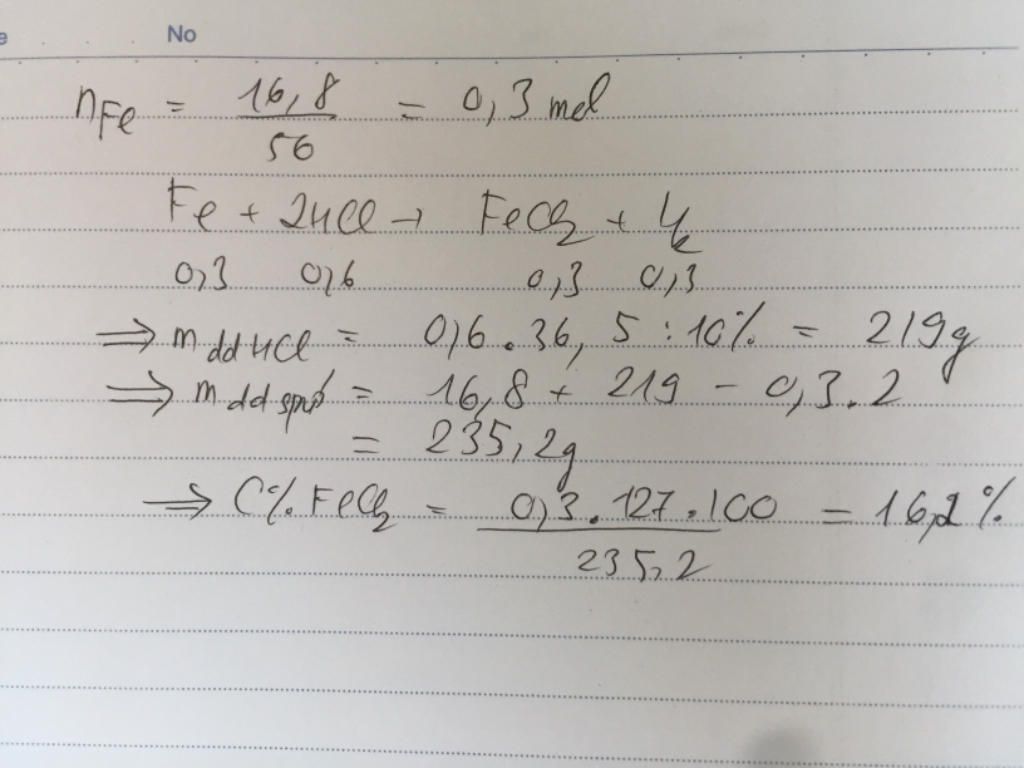 No
nFe = 16,8 / 56 = 0,3 mol
Fe + 2HCl → FeCl2 + H2
0,3 0,6 0,3 0,3
⇒ m dd HCl = 0,6 . 36,5 : 10% = 219g
⇒ m dd spứ = 16,8 + 219 - 0,3.2
= 235,2g
⇒ C% FeCl2 = 0,3.127.100 / 235,2 = 16,2%